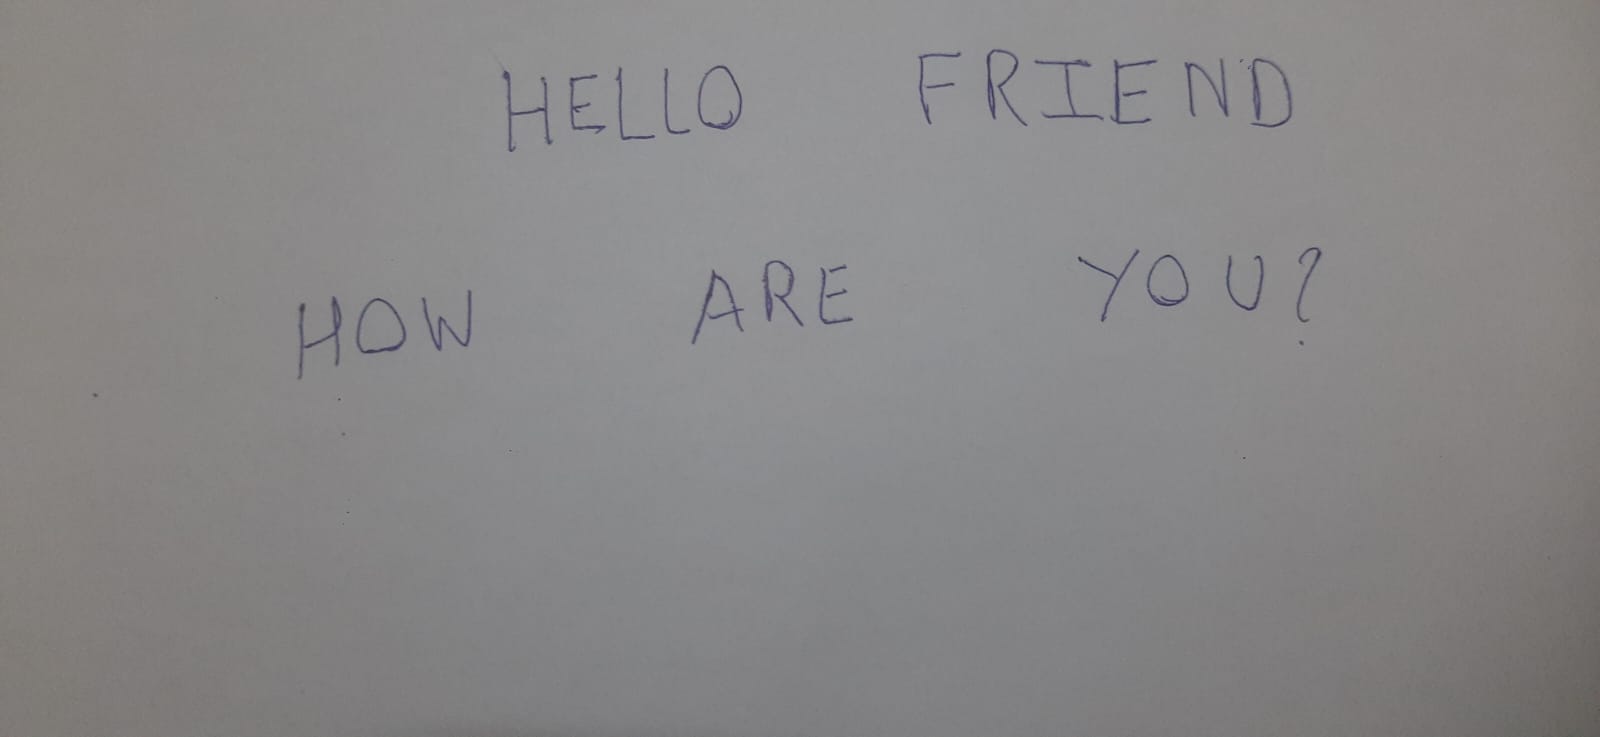 HELLO FRIEND
HOW ARE YOU?